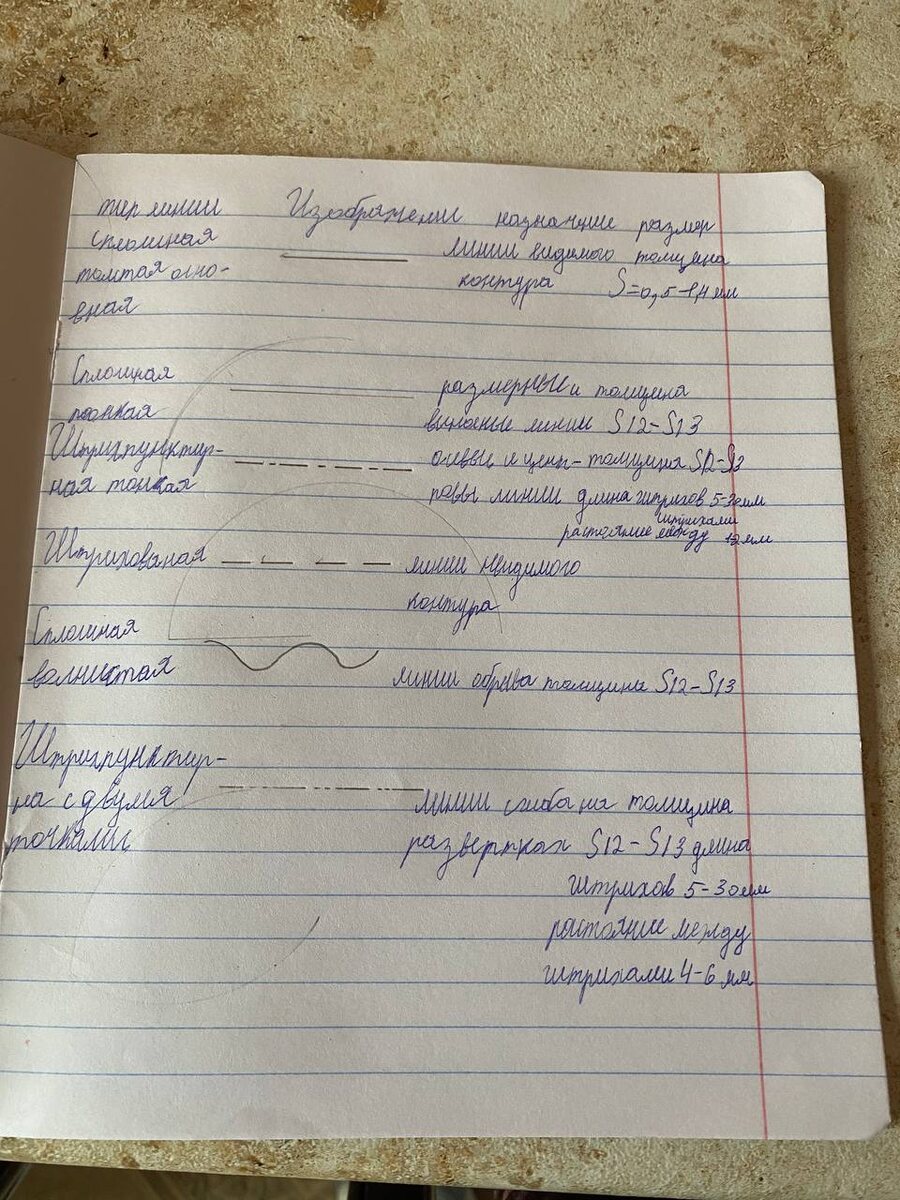 тип линии Изображении назначние размер
сплошная линии видимого толщина
толтая осно- контура S=0,5-1,4 мм
вная
Сплошная размерные и толщина
тонкая выносные линии S12-S13
Штрихпунктир- осевые и цент- толщина S12-S3
ная тонкая ровы линии длина штрихов 5-30мм
штрихами
растояние между 12 мм
Штрихованая линии невидимого
контура
Сплошная
волнистая линии обрыва толщина S12-S13
Штрихпунктир-
на с двумя линии сгиба на толщина
точками развертках S12-S13 длина
штрихов 5-30мм
растояние между
штрихами 4-6 мм